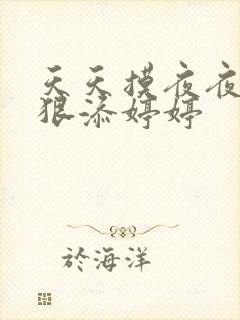 天天摸夜夜
狠添婷婷
於海洋